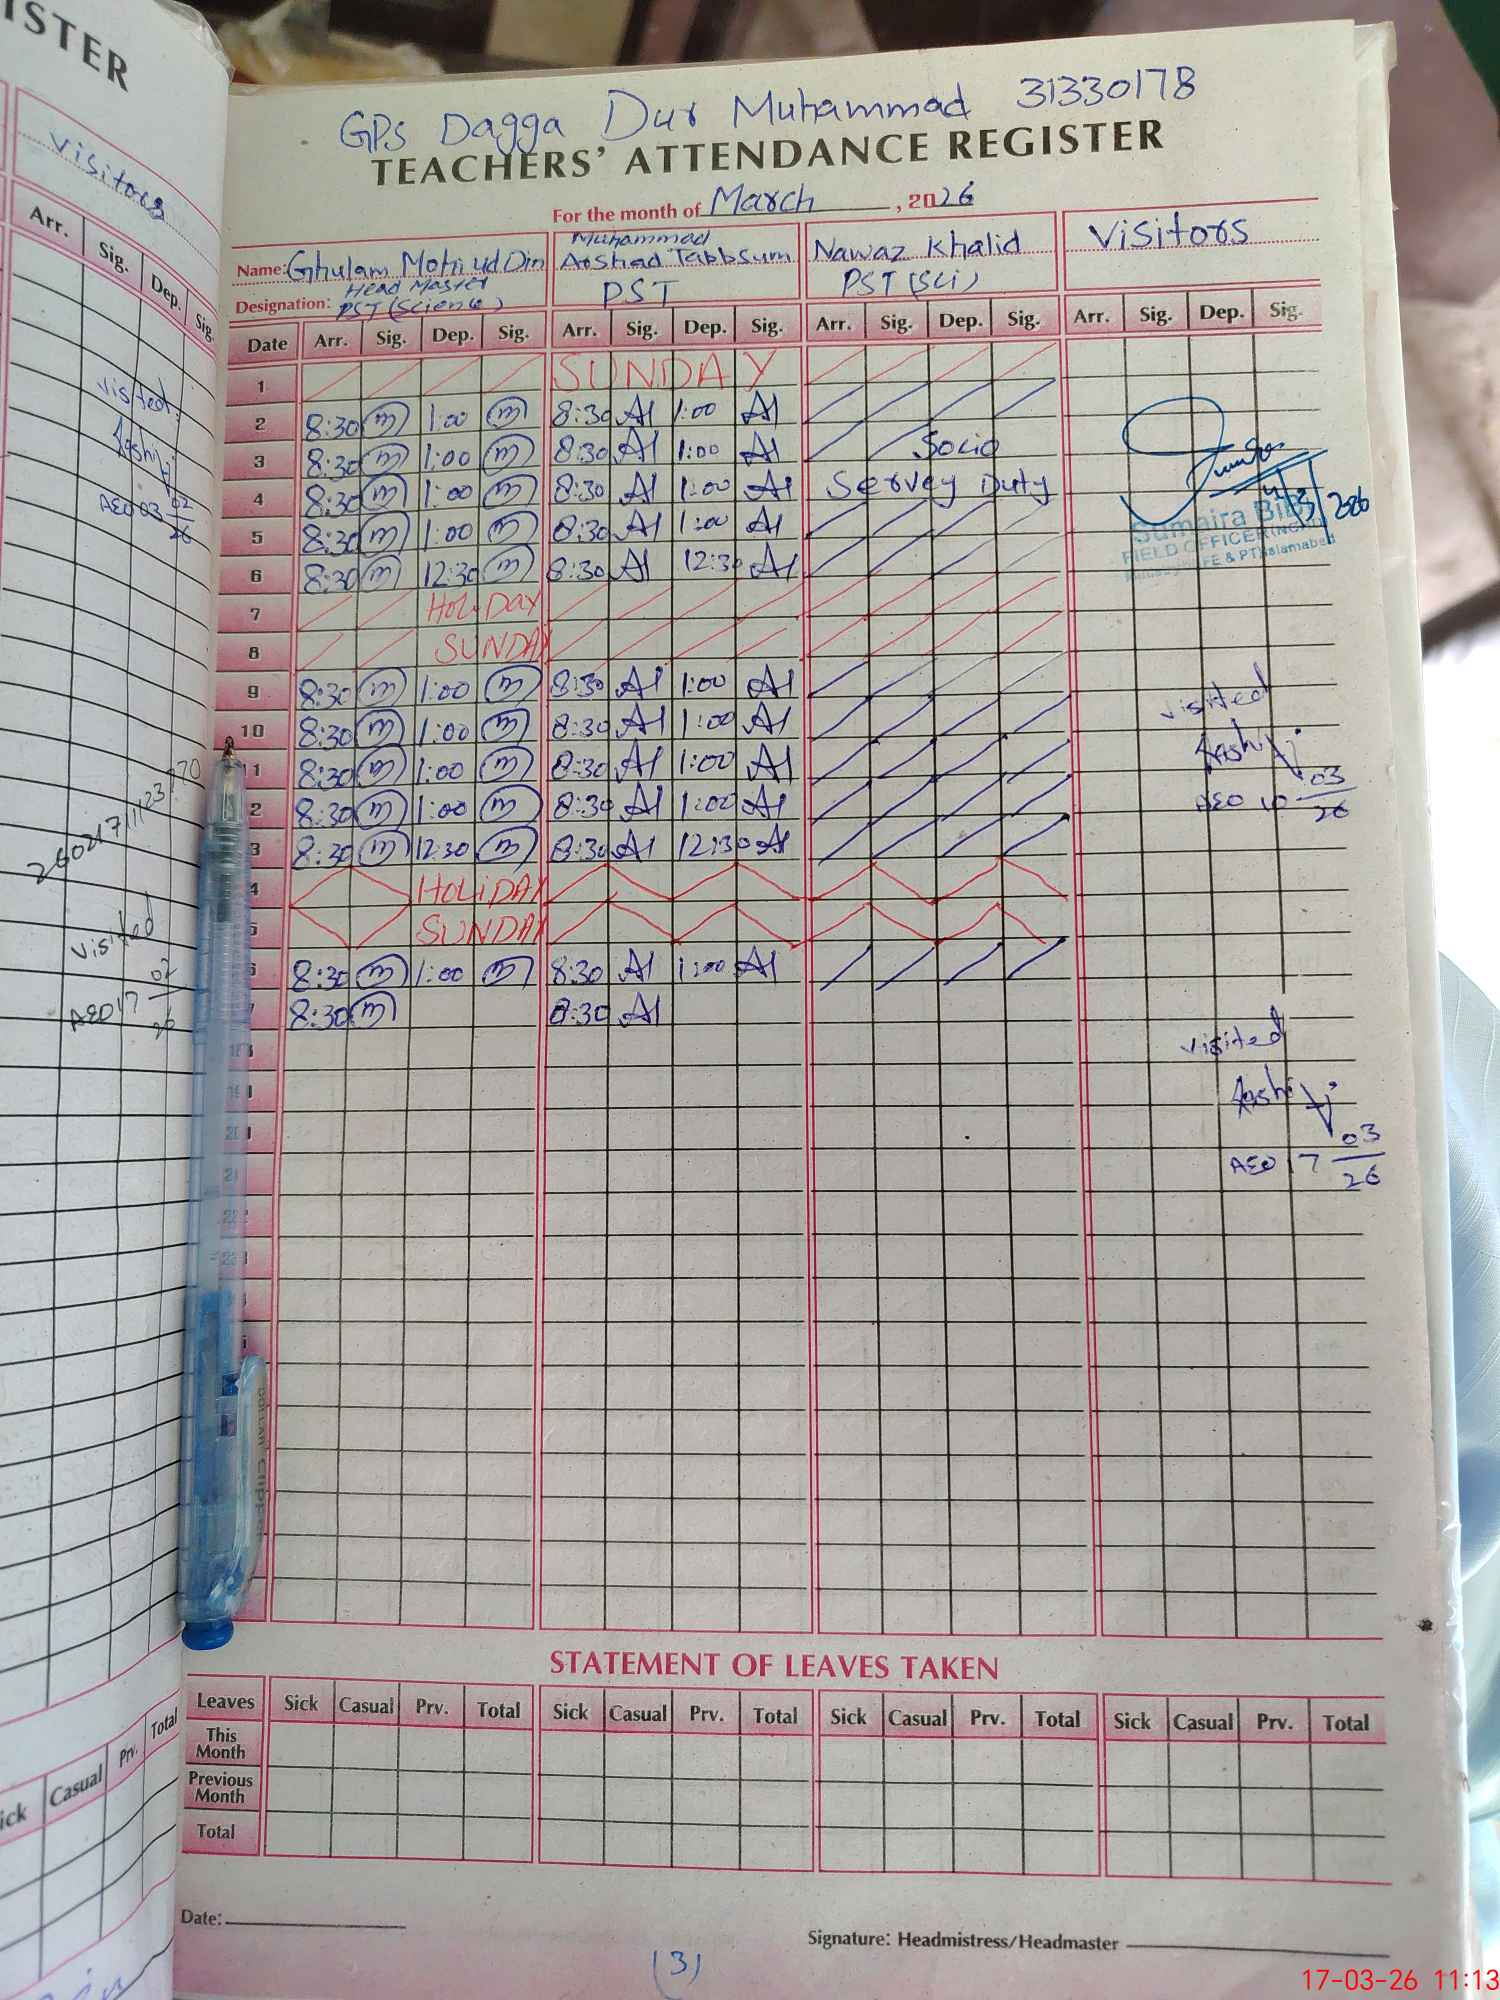 ISTER
visitors
Arr. Sig. Dep. Sig.
visited
AEO 03 02
26
26021711123770
visited
AEO 17 02
26
Total
Sick Casual Prv.
GPS Dagga Dur Muhammad 31330178
TEACHERS' ATTENDANCE REGISTER
For the month of March, 2026
Name: Ghulam Mohi ud Din Muhammad Arshad Tabbsum Nawaz Khalid Visitors
Designation: Head Master PST (Science) PST PST (Sci)
Date Arr. Sig. Dep. Sig. Arr. Sig. Dep. Sig. Arr. Sig. Dep. Sig. Arr. Sig. Dep. Sig.
1 SUNDAY
2 8:30 m 1:00 m 8:30 A1 1:00 A1
3 8:30 m 1:00 m 8:30 A1 1:00 A1 Socio
4 8:30 m 1:00 m 8:30 A1 1:00 A1 Servey Duty
5 8:30 m 1:00 m 8:30 A1 1:00 A1
4/3/2026
Sumaira Bibi
FIELD OFFICER
FE & PT Islamabad
6 8:30 m 12:30 m 8:30 A1 12:30 A1
7 HOLIDAY
8 SUNDAY
9 8:30 m 1:00 m 8:30 A1 1:00 A1 visited
10 8:30 m 1:00 m 8:30 A1 1:00 A1
11 8:30 m 1:00 m 8:30 A1 1:00 A1
2 8:30 m 1:00 m 8:30 A1 1:00 A1 AEO 10 03
26
3 8:30 m 12:30 m 8:30 A1 12:30 A1
4 HOLIDAY
5 SUNDAY
6 8:30 m 1:00 m 8:30 A1 1:00 A1
7 8:30 m 8:30 A1
18 visited
19
20 AEO 17 03
26
21
22
23
STATEMENT OF LEAVES TAKEN
Leaves Sick Casual Prv. Total Sick Casual Prv. Total Sick Casual Prv. Total Sick Casual Prv. Total
This Month
Previous Month
Total
Date:
Signature: Headmistress/Headmaster
(3)
DOLLAR Clipper
17-03-26 11:13